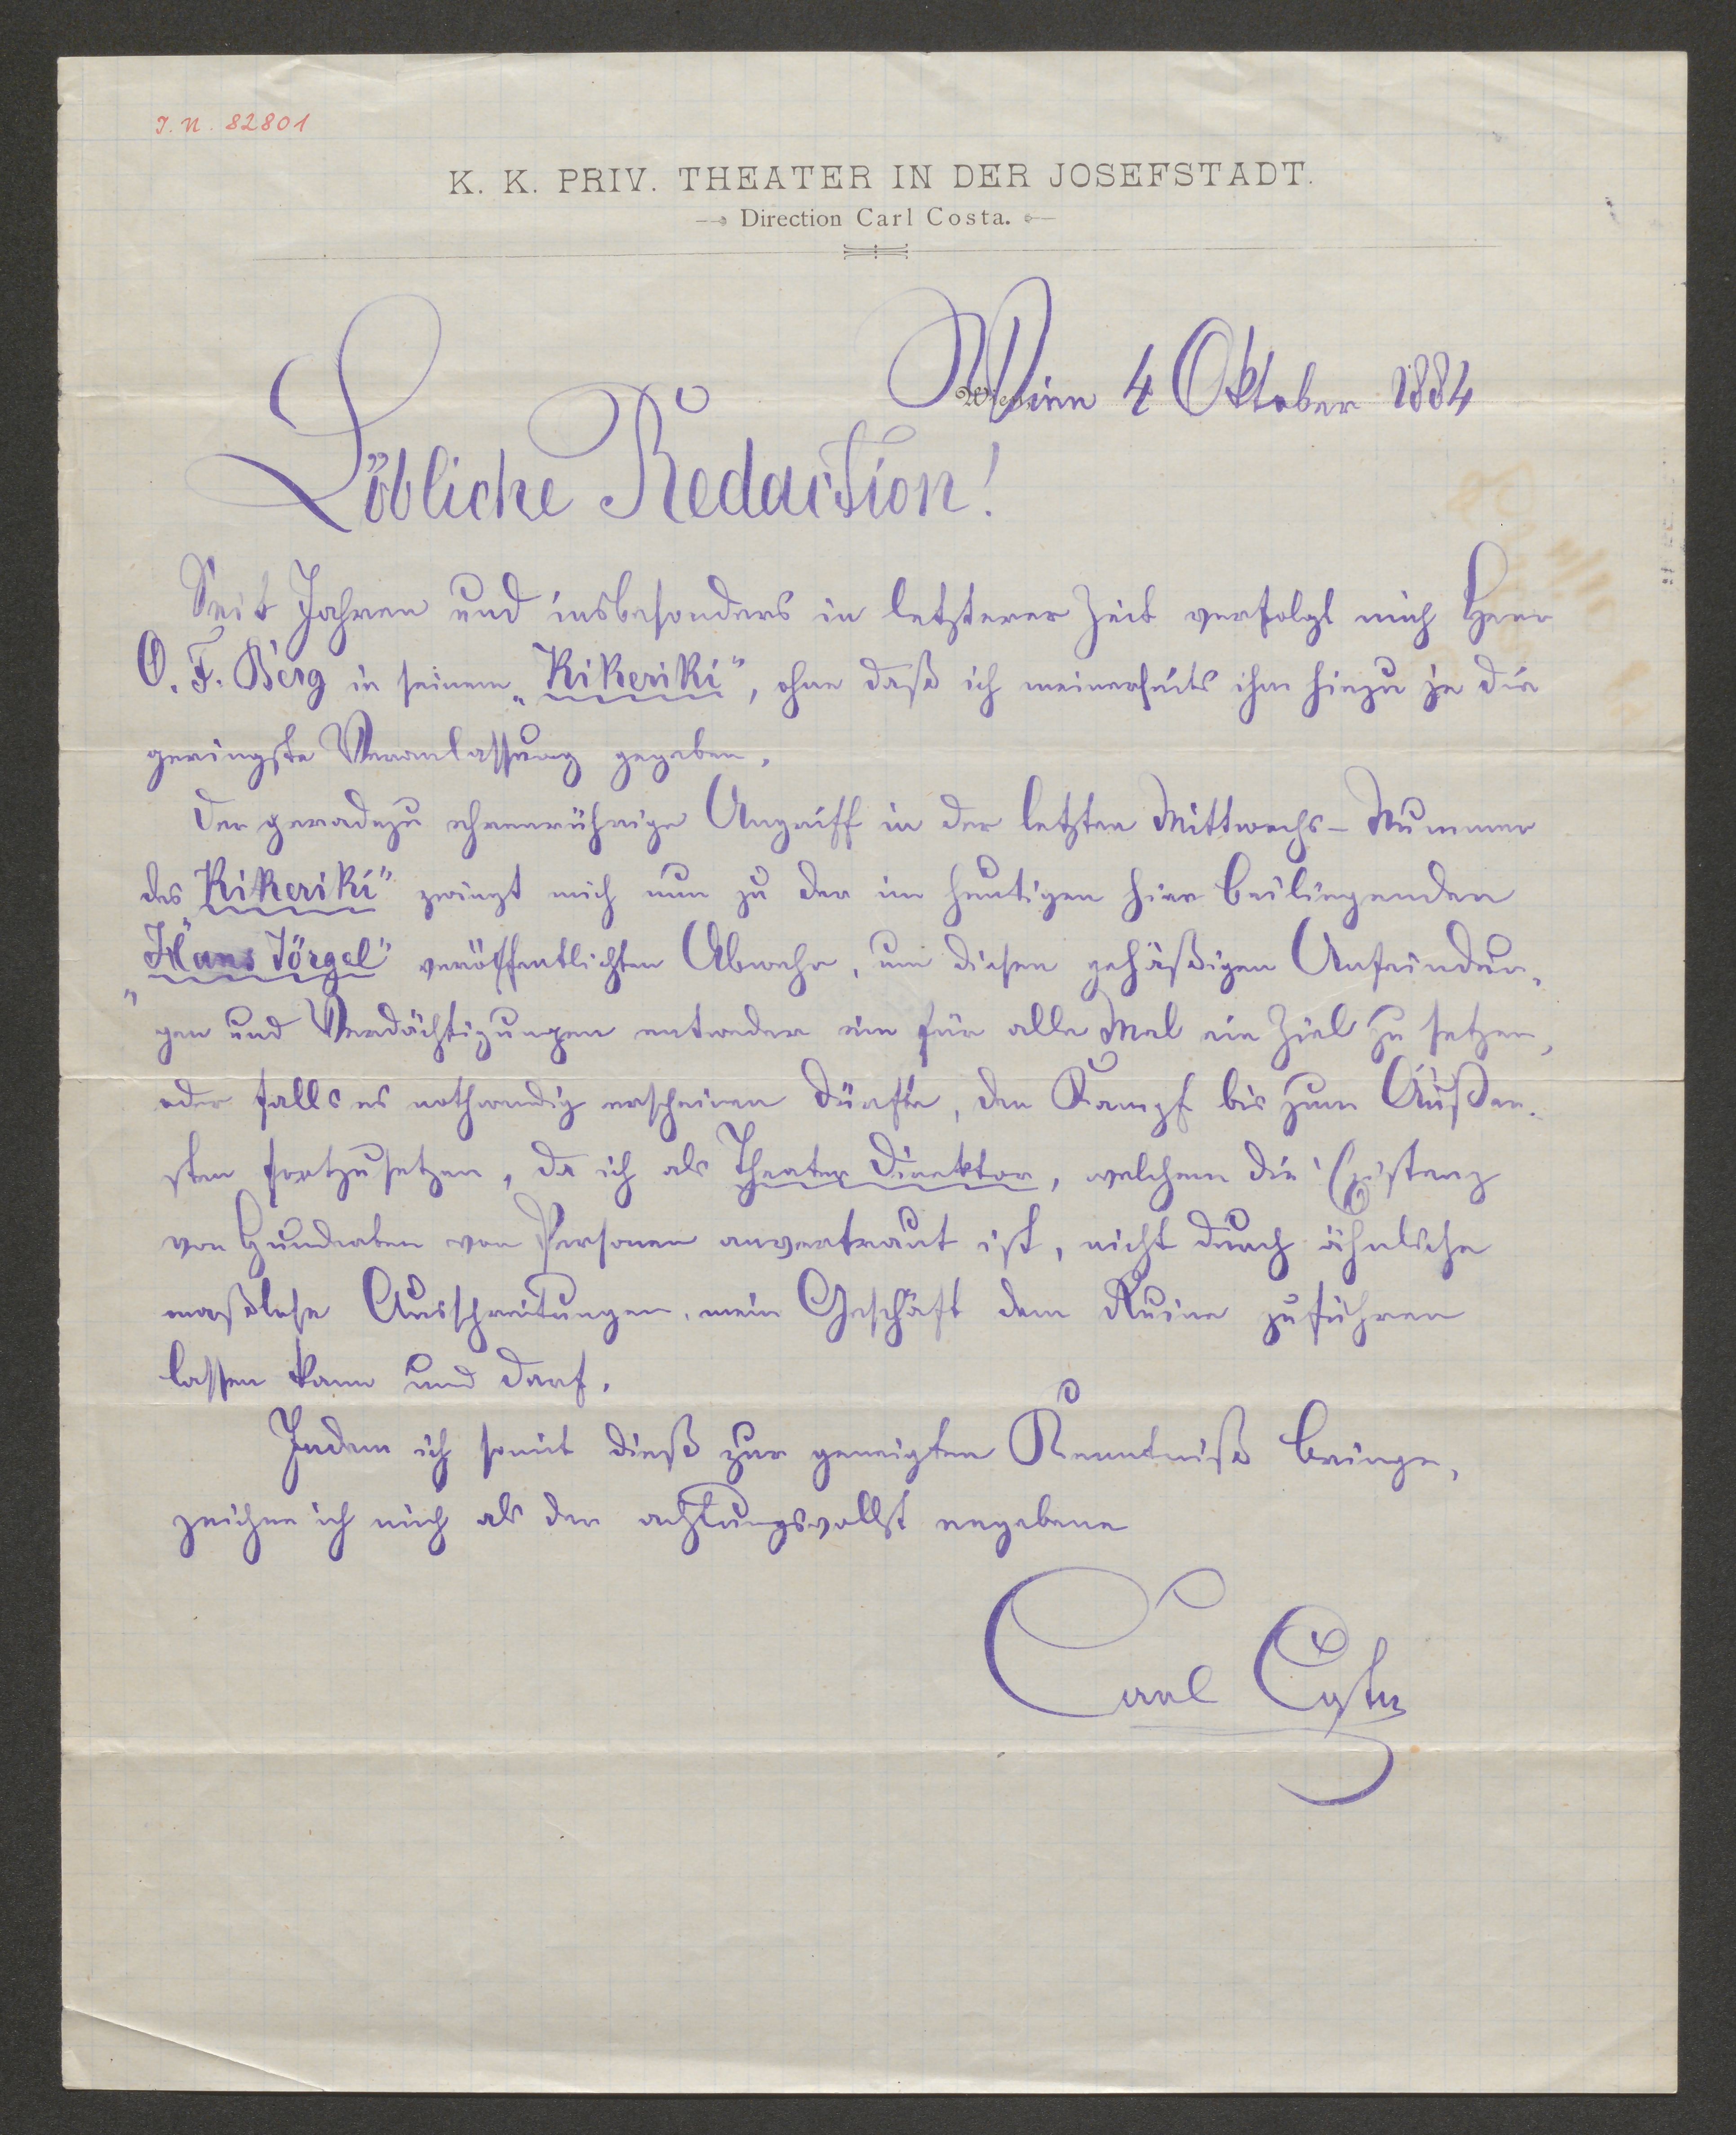 J. N. 82801
K. K. PRIV. THEATER IN DER JOSEFSTADT.
Direction Carl Costa.
Wien 4 Oktober 1884
Löbliche Redaction!
Seit Jahren und insbesonders in letzterer Zeit verfolgt mich Herr
O. F. Berg in seinem „Kikeriki", ohne daß ich meinerseits ihm hiezu je die
geringste Veranlassung gegeben.
Der geradezu ehrenrührige Angriff in der letzten Mittwochs-Nummer
des „Kikeriki" zwingt mich nun zu der im heutigen hier beiliegenden
„Hans Jörgel" veröffentlichten Abwehr, um diesen gehäßigen Anfeindun-
gen und Verdächtigungen entweder ein für alle Mal ein Ziel zu setzen,
oder falls es nothwendig erscheinen dürfte, den Kampf bis zum Äußer-
sten fortzusetzen, da ich als Theater Direktor, welchem die Existenz
von Hunderten von Personen anvertraut ist, nicht durch ähnliche
maßlose Ausschreitungen, mein Geschäft dem Ruine zuführen
lassen kann und darf.
Indem ich somit dieß zur geneigten Kenntniß bringe,
zeichne ich mich als der achtungsvollst ergebene
Carl Costa